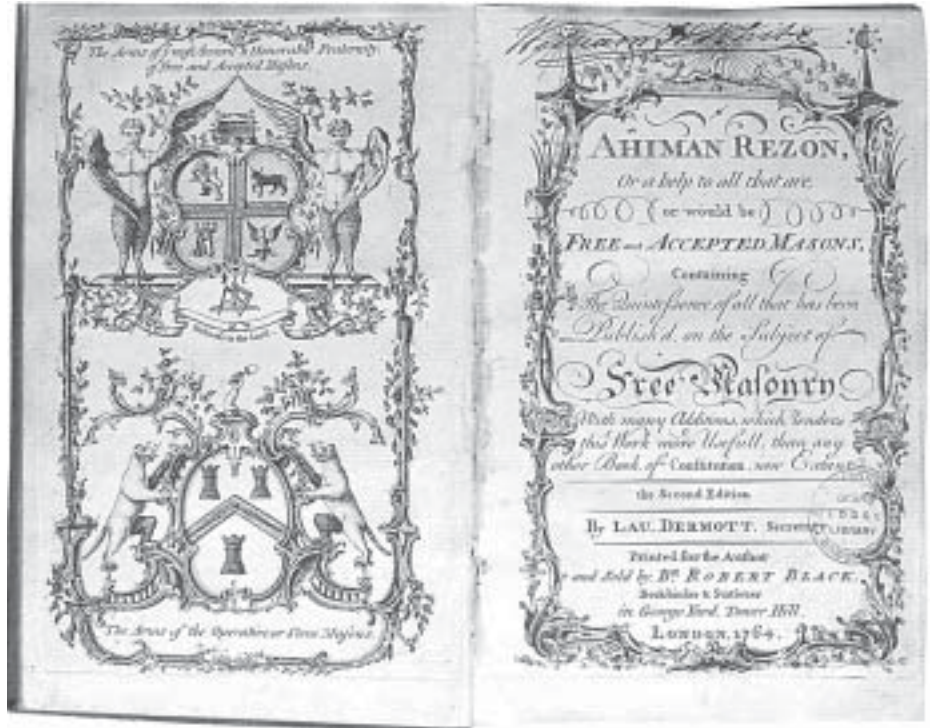 The Arms of ye most Ancient & Honorable Fraternity,
of Free and Accepted Masons.
The Arms of the Operative or Stone Masons.
AHIMAN REZON,
Or a help to all that are,
(or would be)
FREE and ACCEPTED MASONS,
Containing
The Quintessence of all that has been
Publish'd on the Subject of
Free Masonry
With many Additions, which renders
this Work more Usefull, than any
other Book of Constitution, now Extant.
the Second Edition
By LAU. DERMOTT. Secretary.
Printed for the Author
and Sold by Br. ROBERT BLACK.
Bookbinder & Stationer
in George Yard, Tower Hill.
LONDON, 1764.
LIBRARY